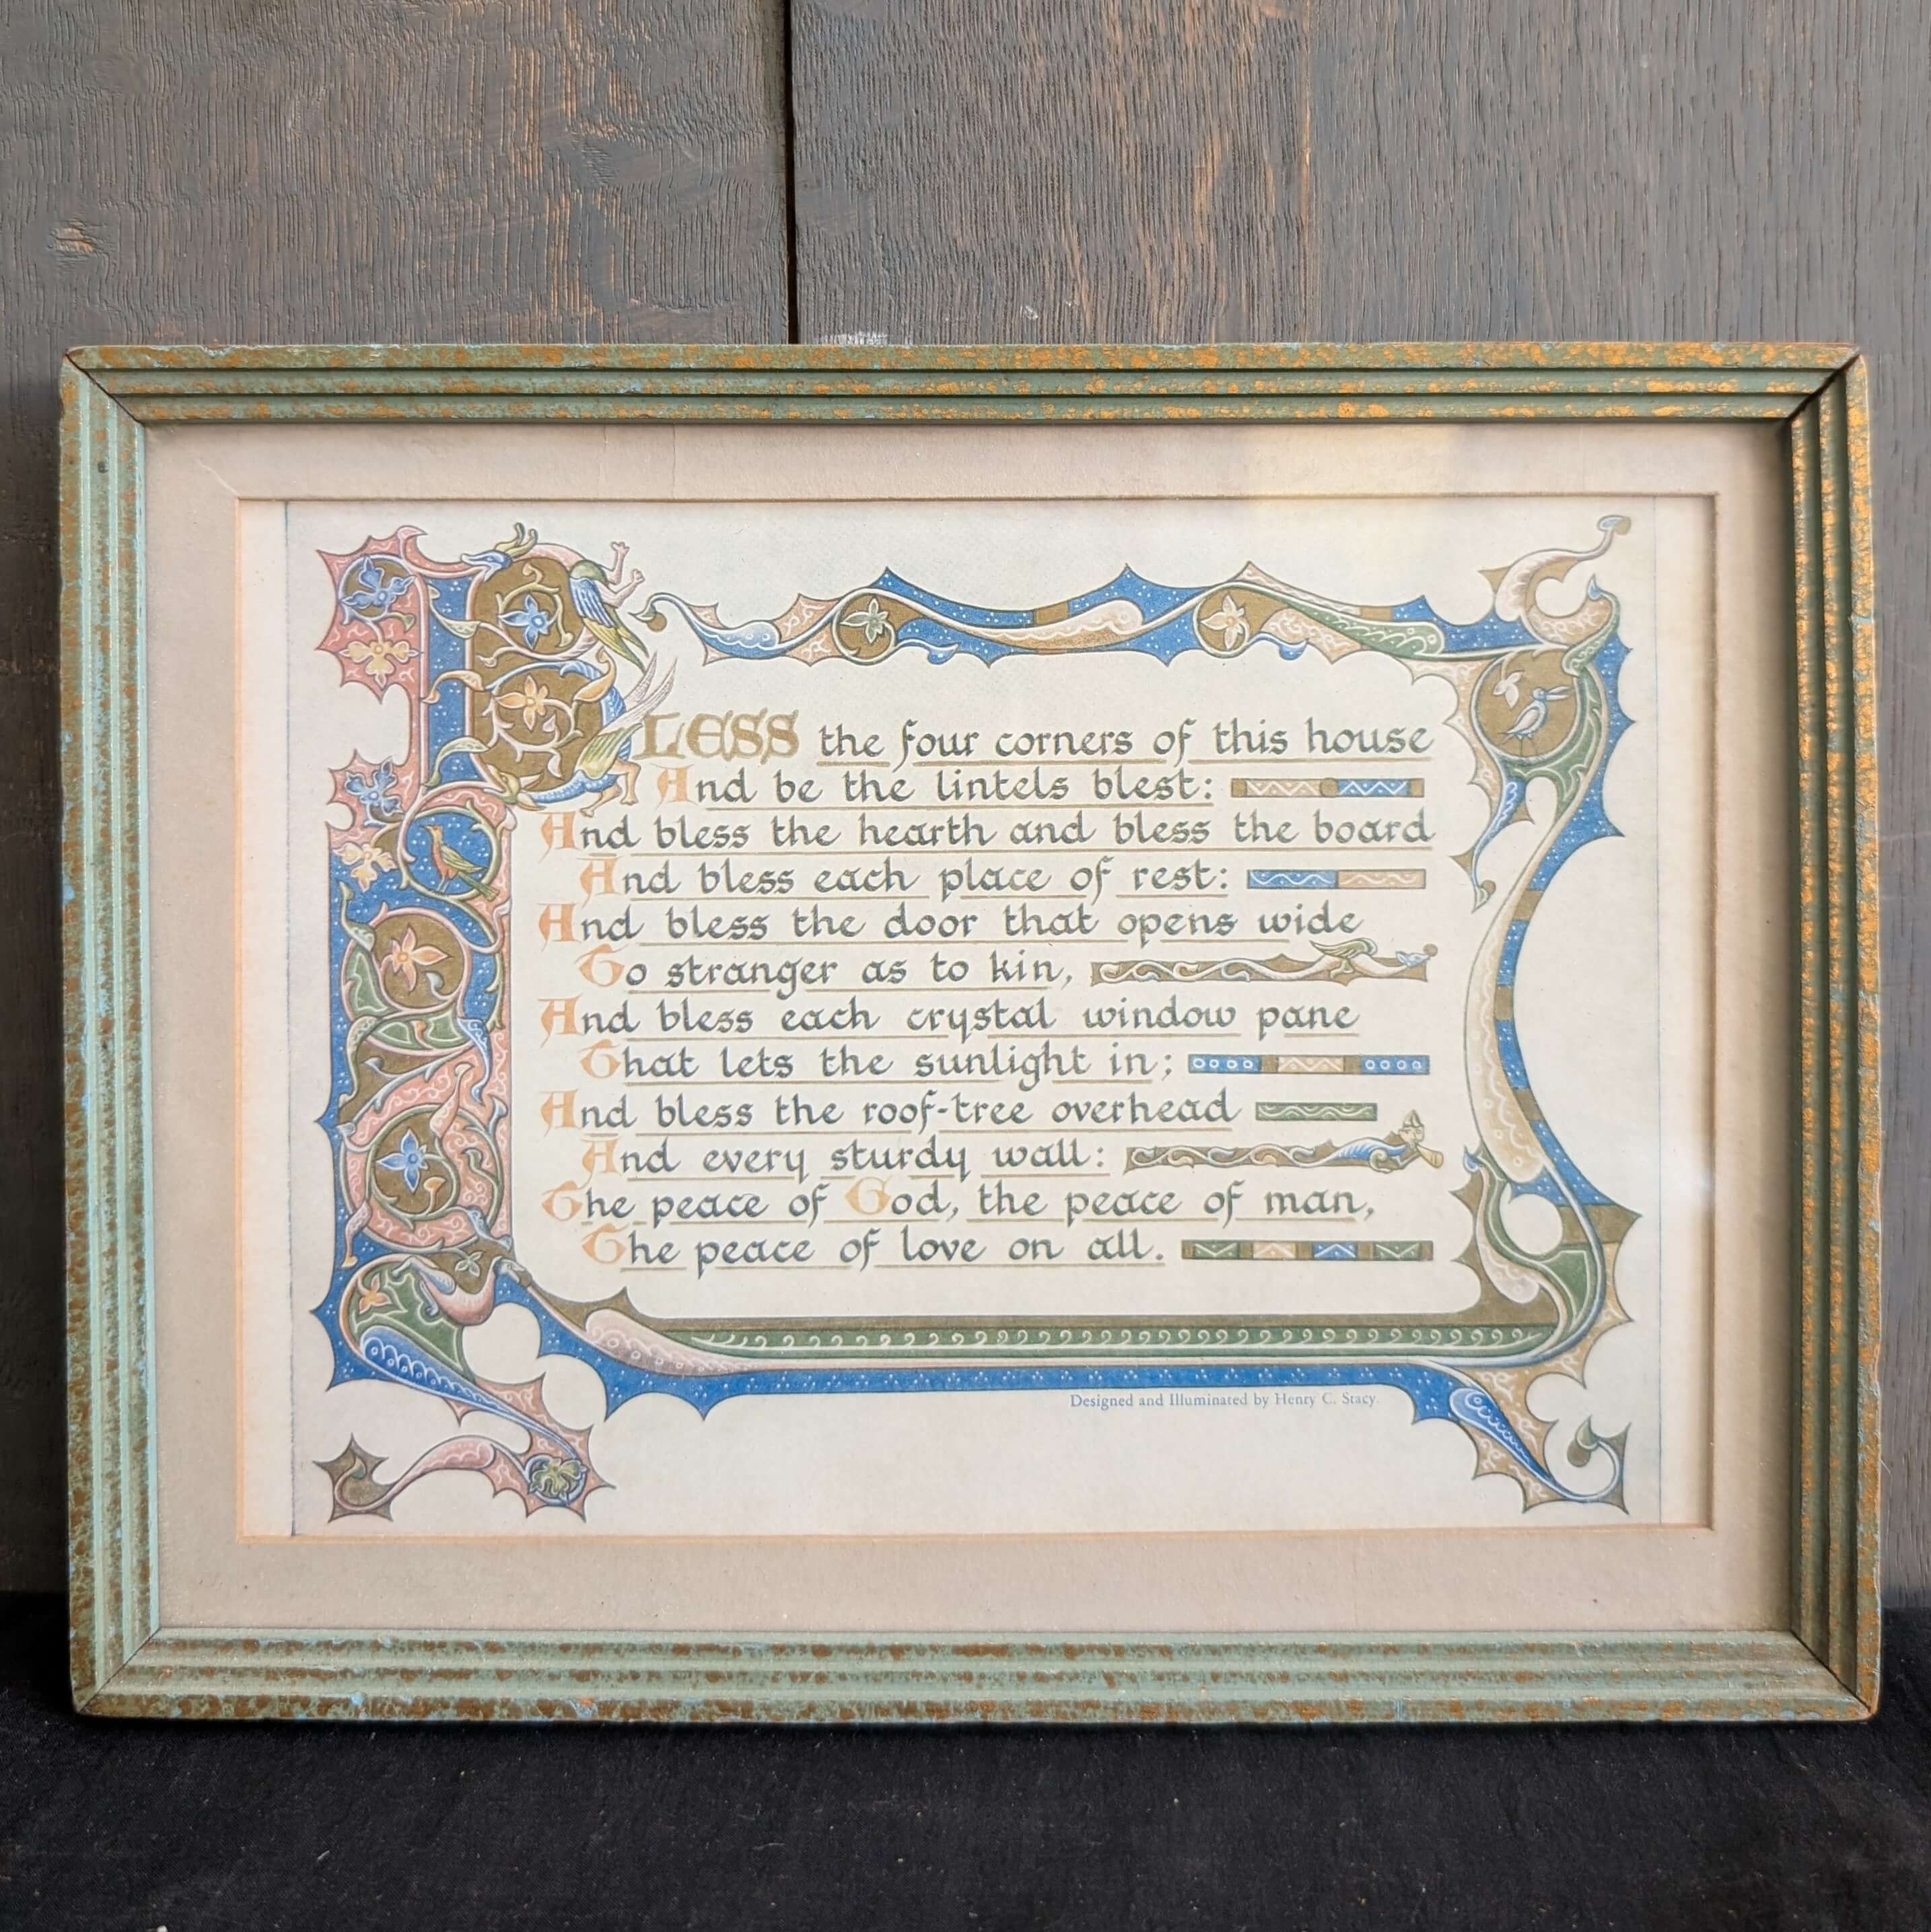 BLESS the four corners of this house
And be the lintels blest:
And bless the hearth and bless the board
And bless each place of rest:
And bless the door that opens wide
To stranger as to kin,
And bless each crystal window pane
That lets the sunlight in;
And bless the roof-tree overhead
And every sturdy wall:
The peace of God, the peace of man,
The peace of love on all.
Designed and Illuminated by Henry C. Stacy.